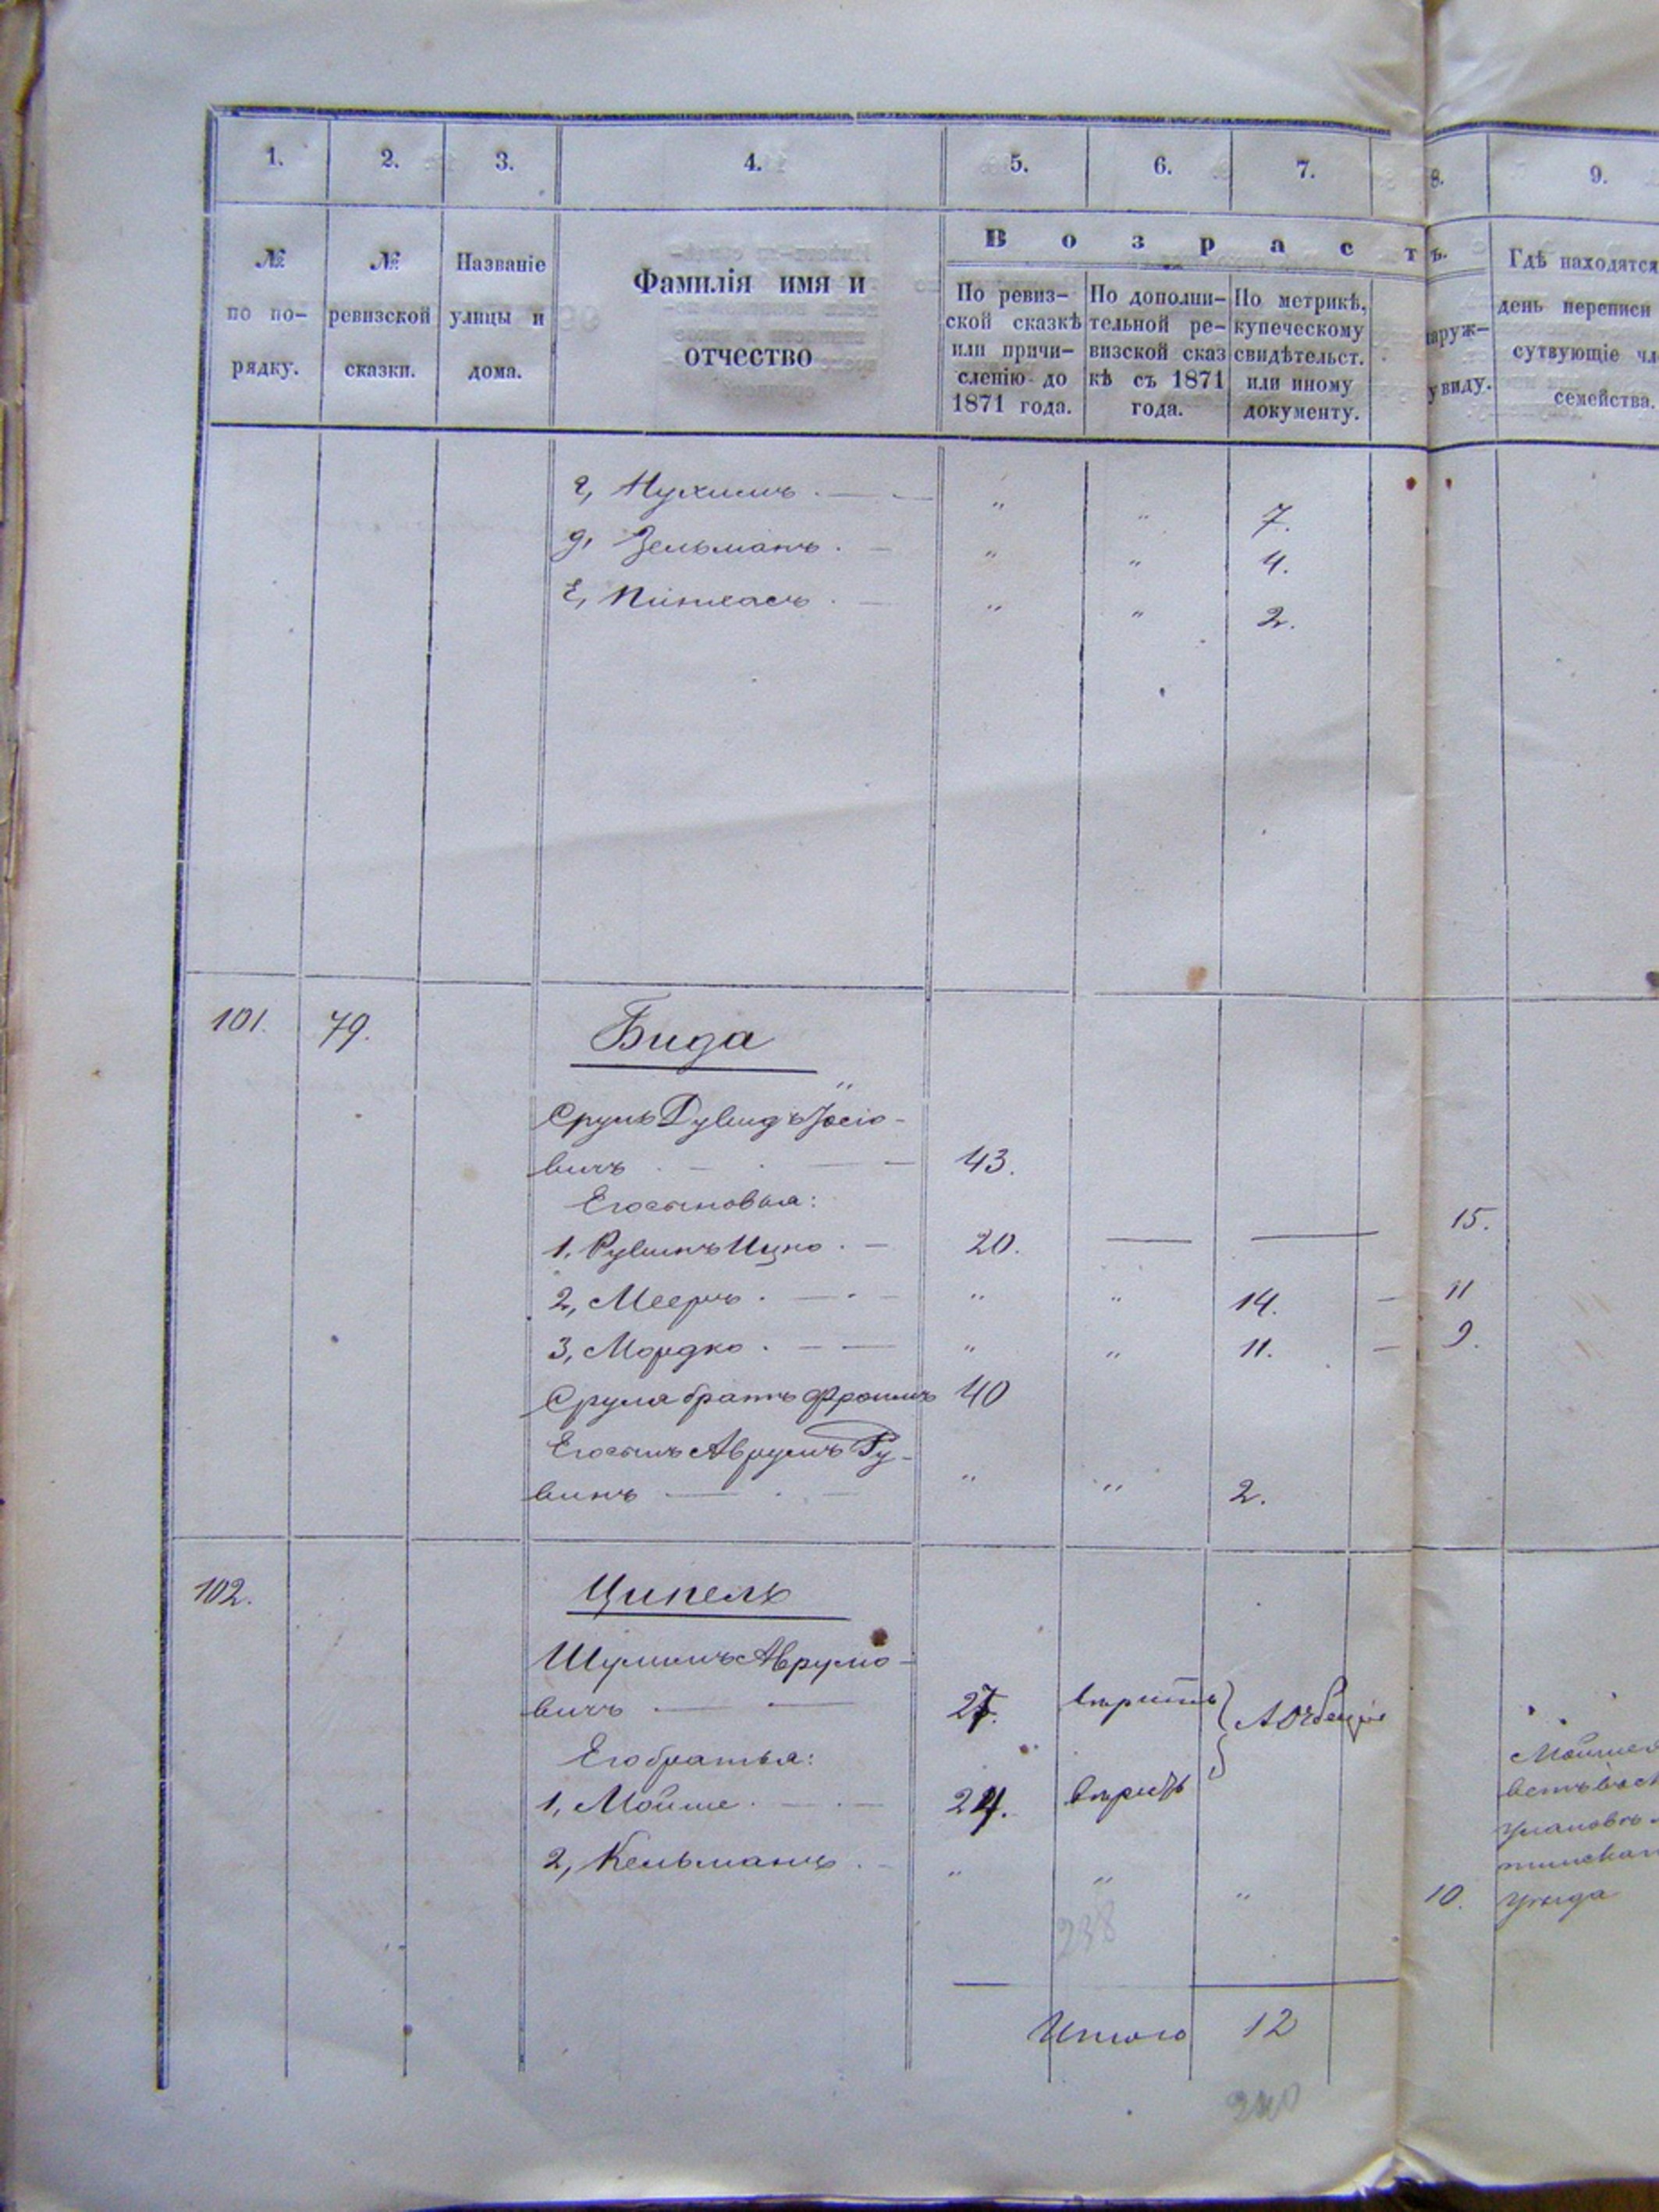 1. 2. 3. 4. 5. 6. 7. 8. 9.
№ по по-рядку.
№ ревизской сказки.
Названіе улицы и дома.
Фамилія имя и отчество
Возрастъ.
По ревиз-ской сказкѣ или причи-сленію до 1871 года.
По дополни-тельной ре-визской сказ кѣ съ 1871 года.
По метрикѣ, купеческому свидѣтельст. или иному документу.
наруж- у виду.
Гдѣ находятся день переписи сутвующіе чл семейства.
г, Нухимъ . — " " 7.
д, Зельманъ . — " " 4.
Е, Пинхасъ . — " " 2.
101. 79. Бида
Сруль Дувидъ Іосіо-
вичъ — 43.
Его сыновья:
1, Рувинъ Ицко . — 20. — — 15.
2, Мееръ . — " " 14. — 11
3, Мордко . — " " 11. — 9.
Сруля братъ Фроимъ 40
Его сынъ Аврумъ Ру-
винъ — " " 2.
102. Ципель
Шулимъ Аврумо-
вичъ — 27.
Его братья:
1, Мойше . — 24.
2, Кельманъ . — " " " 10. уѣзда
238
Итого 12
240